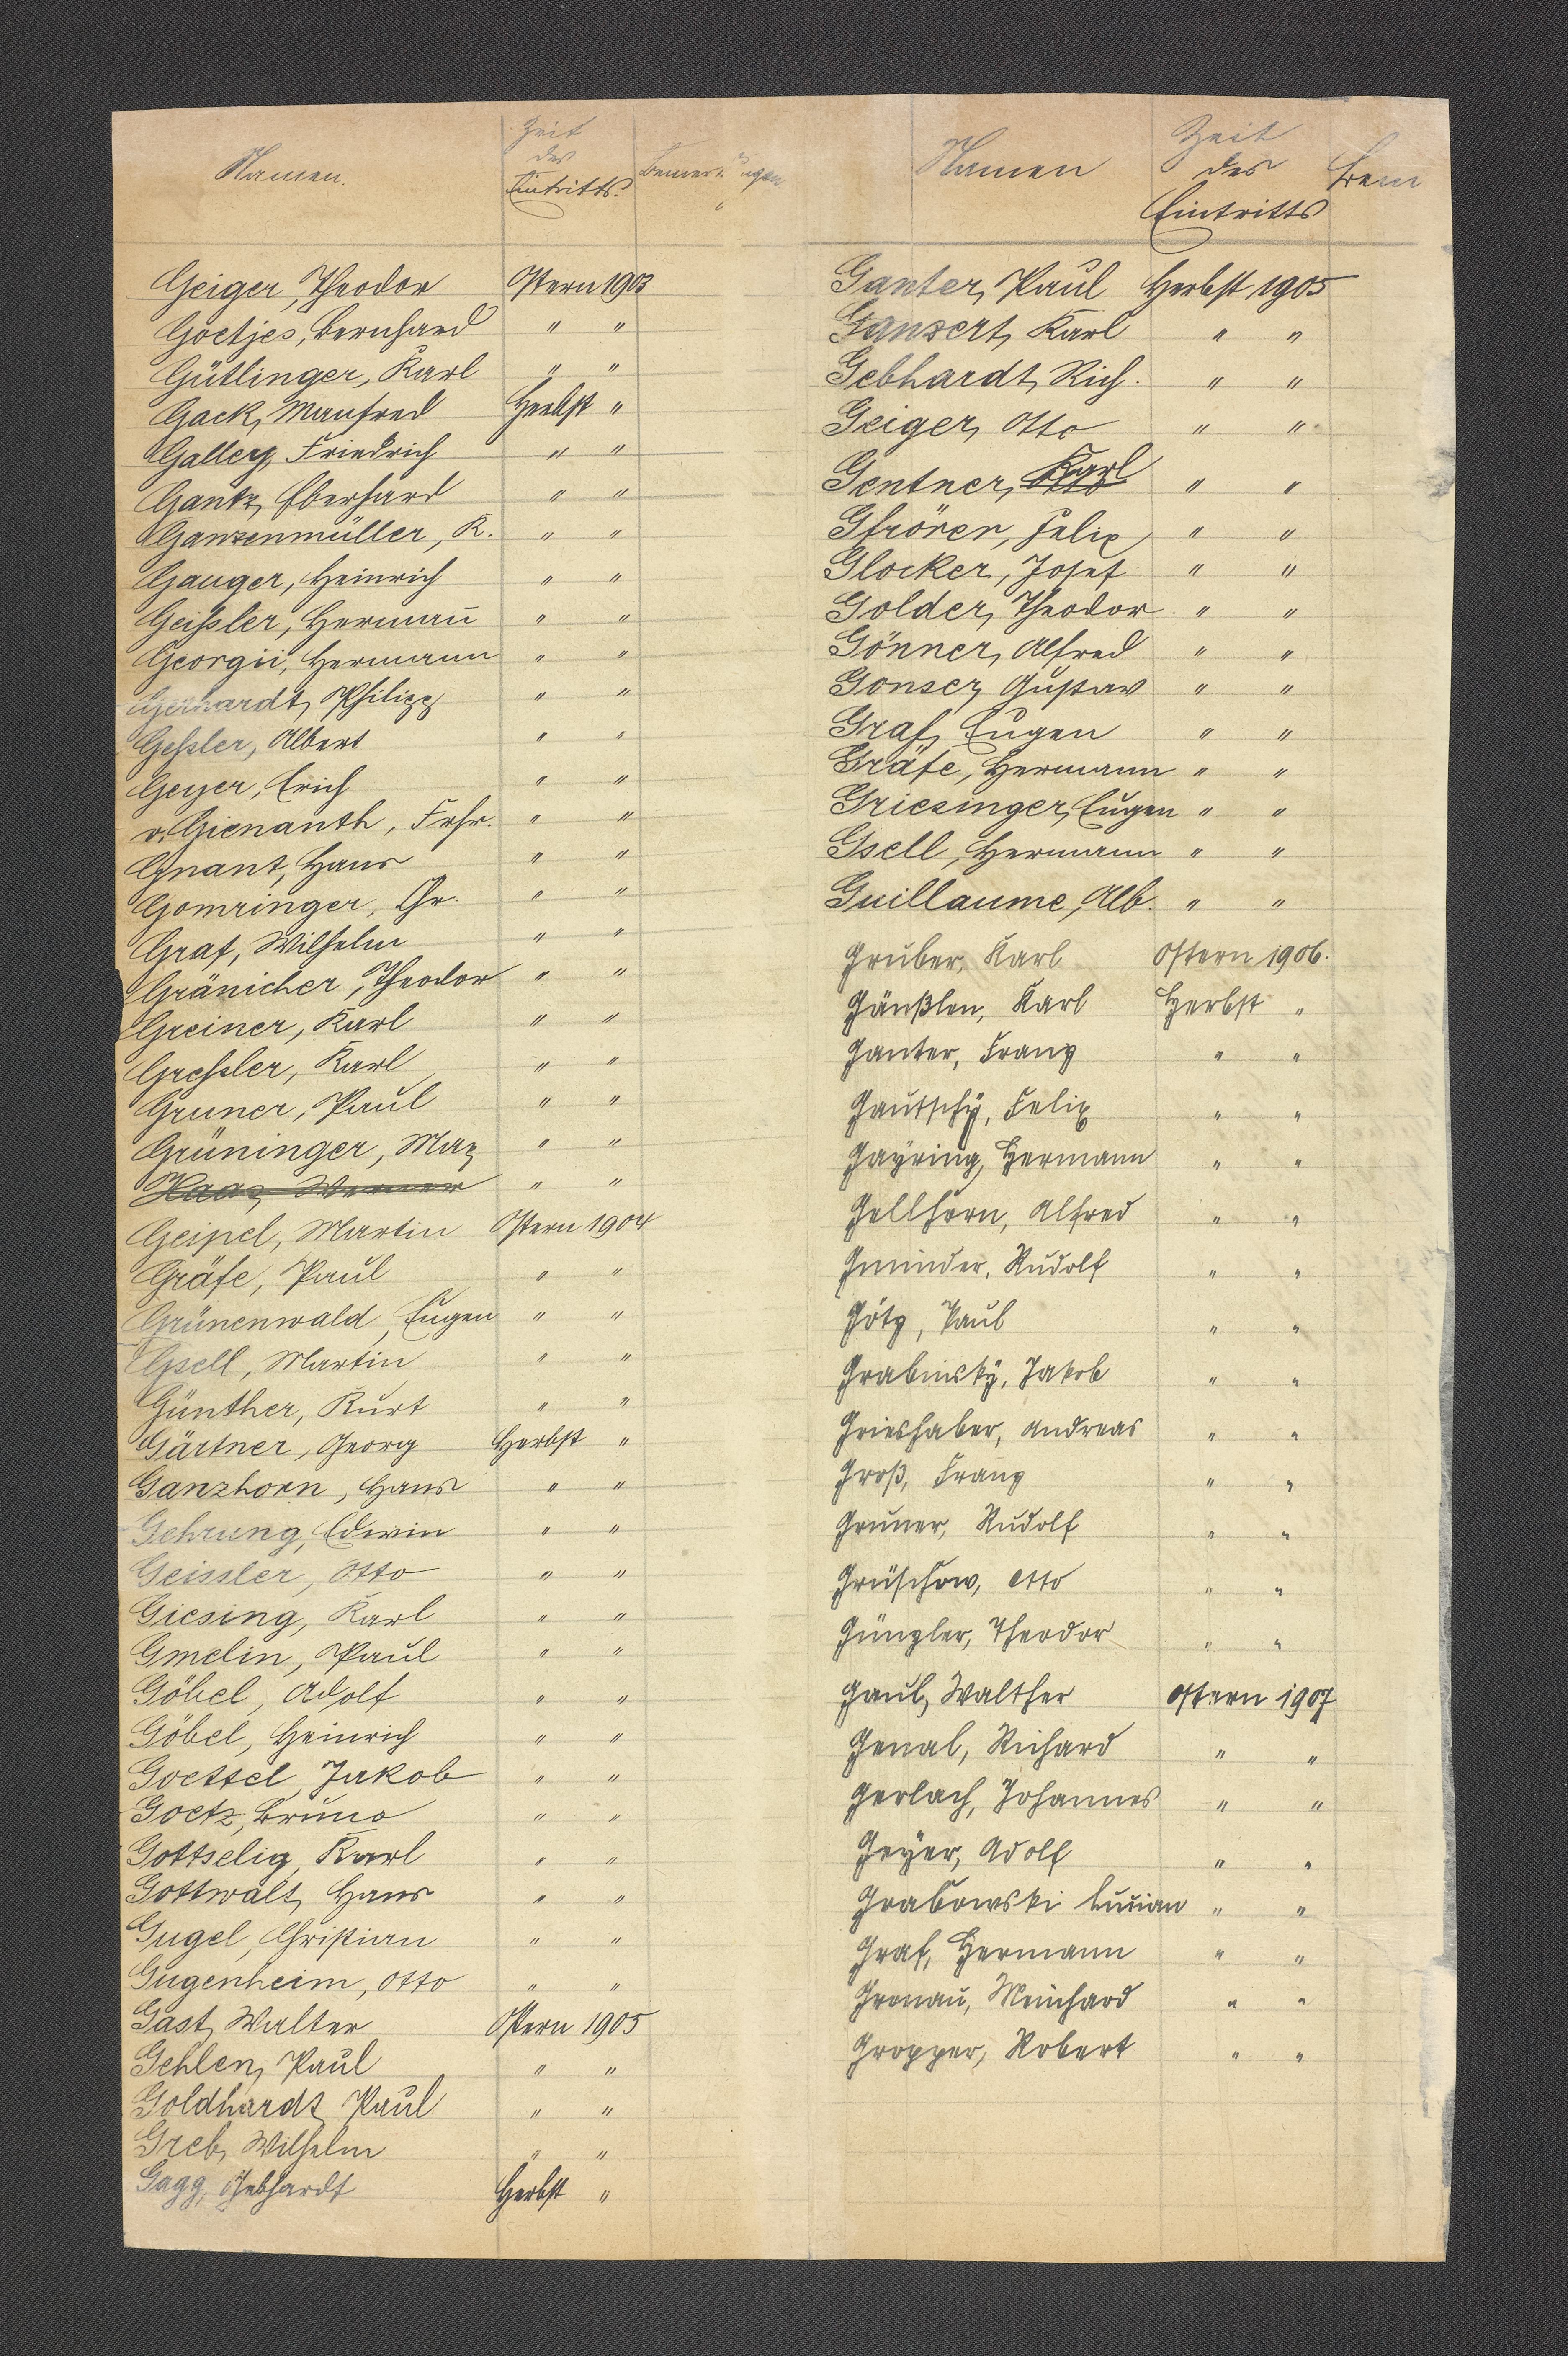 Namen.
Zeit
des
Eintritts.
Bemerkungen
Geiger, Theodor Ostern 1903
Goetjes, Bernhard " "
Gütlinger, Karl " "
Gack, Manfred Herbst "
Galley, Friedrich " "
Gantz, Eberhard " "
Ganzenmüller, K. " "
Gauger, Heinrich " "
Geißler, Hermañ " "
Georgii, Hermann " "
Gerhardt, Philipp " "
Geßler, Albert " "
Geyer, Erich " "
v. Gienanth, Frhr. " "
Gnant, Hans " "
Gomringer, Chr. " "
Graf, Wilhelm " "
Gränicher, Theodor " "
Greiner, Karl " "
Greßler, Karl " "
Gruner, Paul " "
Grüninger, Max " "
Haas, Werner " "
Geipel, Martin Ostern 1904
Gräfe, Paul " "
Grünenwald, Eugen " "
Gsell, Martin " "
Günther, Kurt " "
Gärtner, Georg Herbst "
Ganzhorn, Hans " "
Gehrung, Edwin " "
Geissler, Otto " "
Giesing, Karl " "
Gmelin, Paul " "
Göbel, Adolf " "
Göbel, Heinrich " "
Goettel, Jakob " "
Goetz, Bruno " "
Gottselig, Karl " "
Gottwalt, Hans " "
Gugel, Christian " "
Gugenheim, Otto " "
Gast, Walter Ostern 1905
Gehlen, Paul " "
Goldhardt, Paul " "
Greb, Wilhelm " "
Gagg, Gebhardt Herbst "
Namen
Zeit
des
Eintritts
Bem
Ganter, Paul Herbst 1905
Ganzert, Karl " "
Gebhardt, Rich. " "
Geiger, Otto " "
Gentner, Karl " "
Gfrörer, Felix " "
Glocker, Josef " "
Golder, Theodor " "
Gönner, Alfred " "
Gonser, Gustav " "
Graf, Eugen " "
Gräfe, Hermann " "
Griesinger, Eugen " "
Gsell, Hermann " "
Guillaume, Alb. " "
Gruber, Karl Ostern 1906.
Gänßlen, Karl Herbst "
Ganter, Franz " "
Gautschÿ, Felix " "
Gayring, Hermann " "
Gellhorn, Alfred " "
Gminder, Rudolf " "
Götz, Paul " "
Grabinskÿ, Jakob " "
Grieshaber, Andreas " "
Groß, Franz " "
Gruner, Rudolf " "
Grüschow, Otto " "
Günzler, Theodor " "
Gaul, Walther Ostern 1907
Genal, Richard " "
Gerlach, Johannes " "
Geÿer, Adolf " "
Grabowski Lucian " "
Graf, Hermann " "
Gronau, Meinhard " "
Gropper, Robert " "